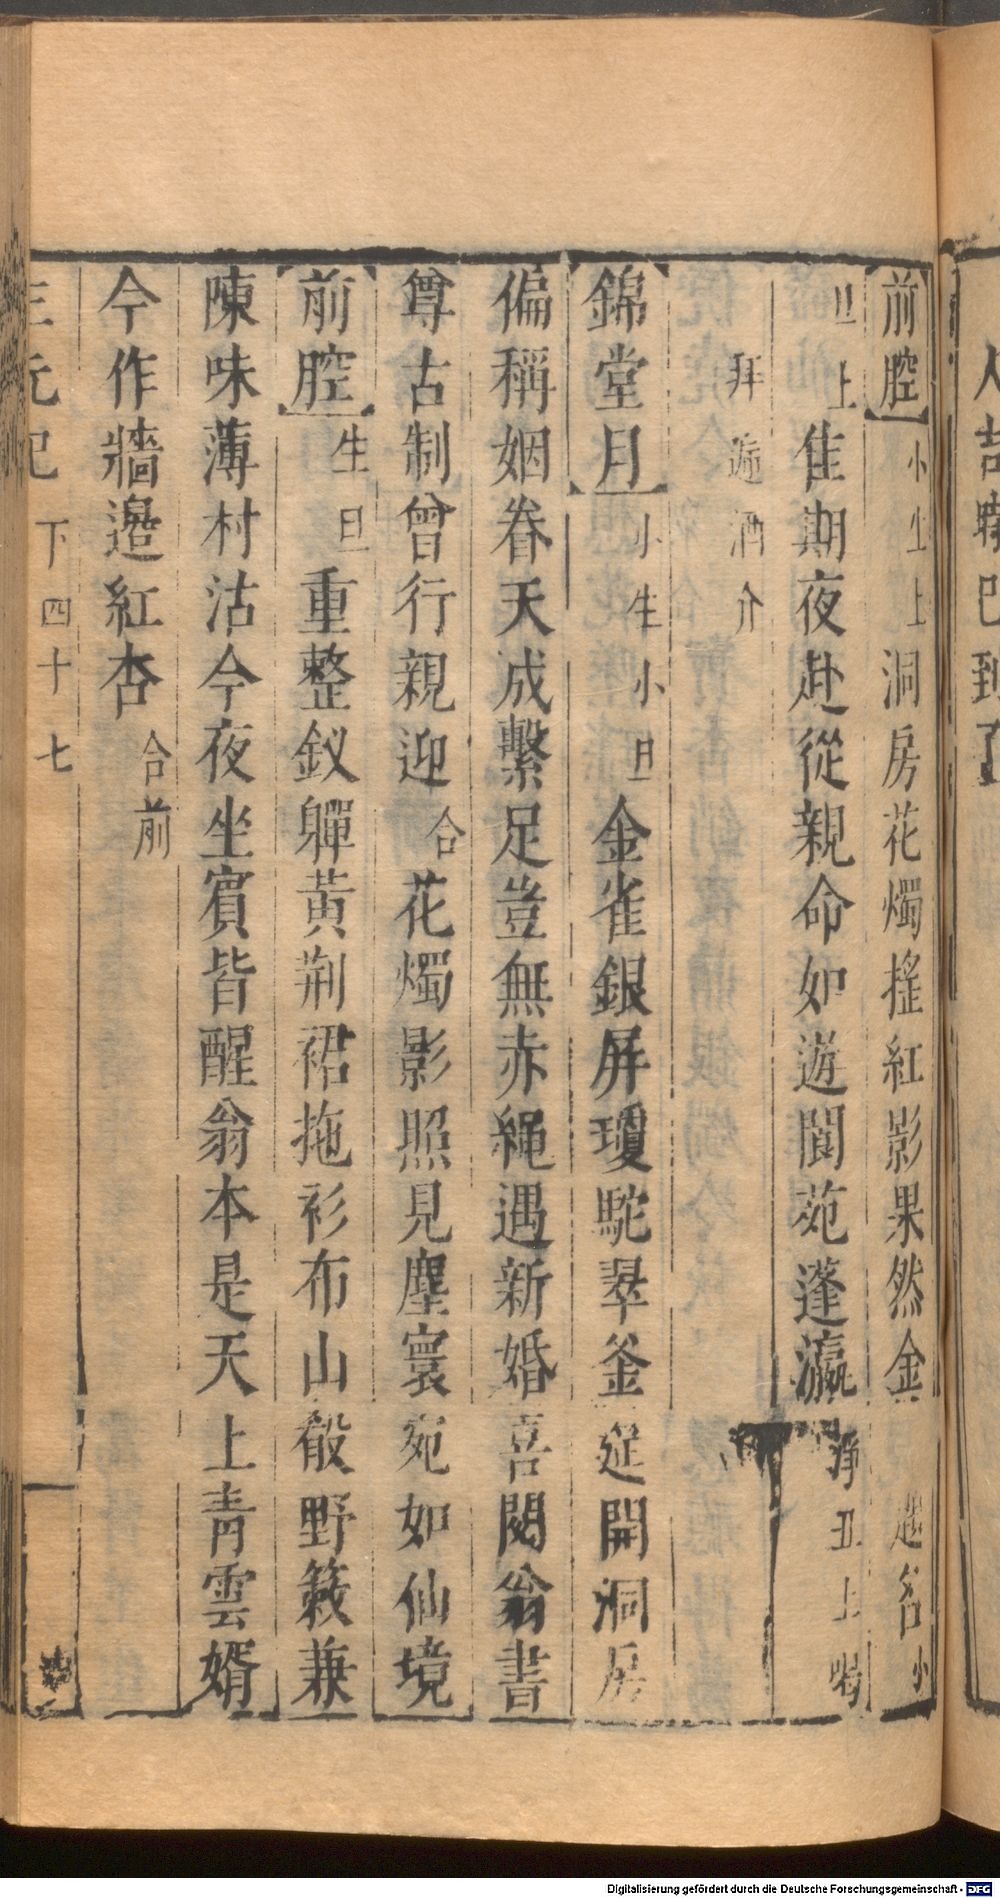 前腔 小生上 洞房花燭搖紅影果然金 小
旦上 佳期夜赴從親命如遊閬苑蓬瀛 淨丑上喝
拜 酒介
錦堂月 小生小旦 金雀銀屏瓊駝翠釜筵開洞房
偏稱姻眷天成繫足豈無赤繩遇新婚喜閱翁書
尊古制曾行親迎 合 花燭影照見塵寰宛如仙境
前腔 生旦 重整釵軃黃荆裙拖衫布山殽野簌兼
陳味薄村沽今夜坐賓皆醒翁本是天上青雲婿
今作牆邊紅杏 合前
三元記 下 四十七
Digitalisierung gefördert durch die Deutsche Forschungsgemeinschaft - DFG